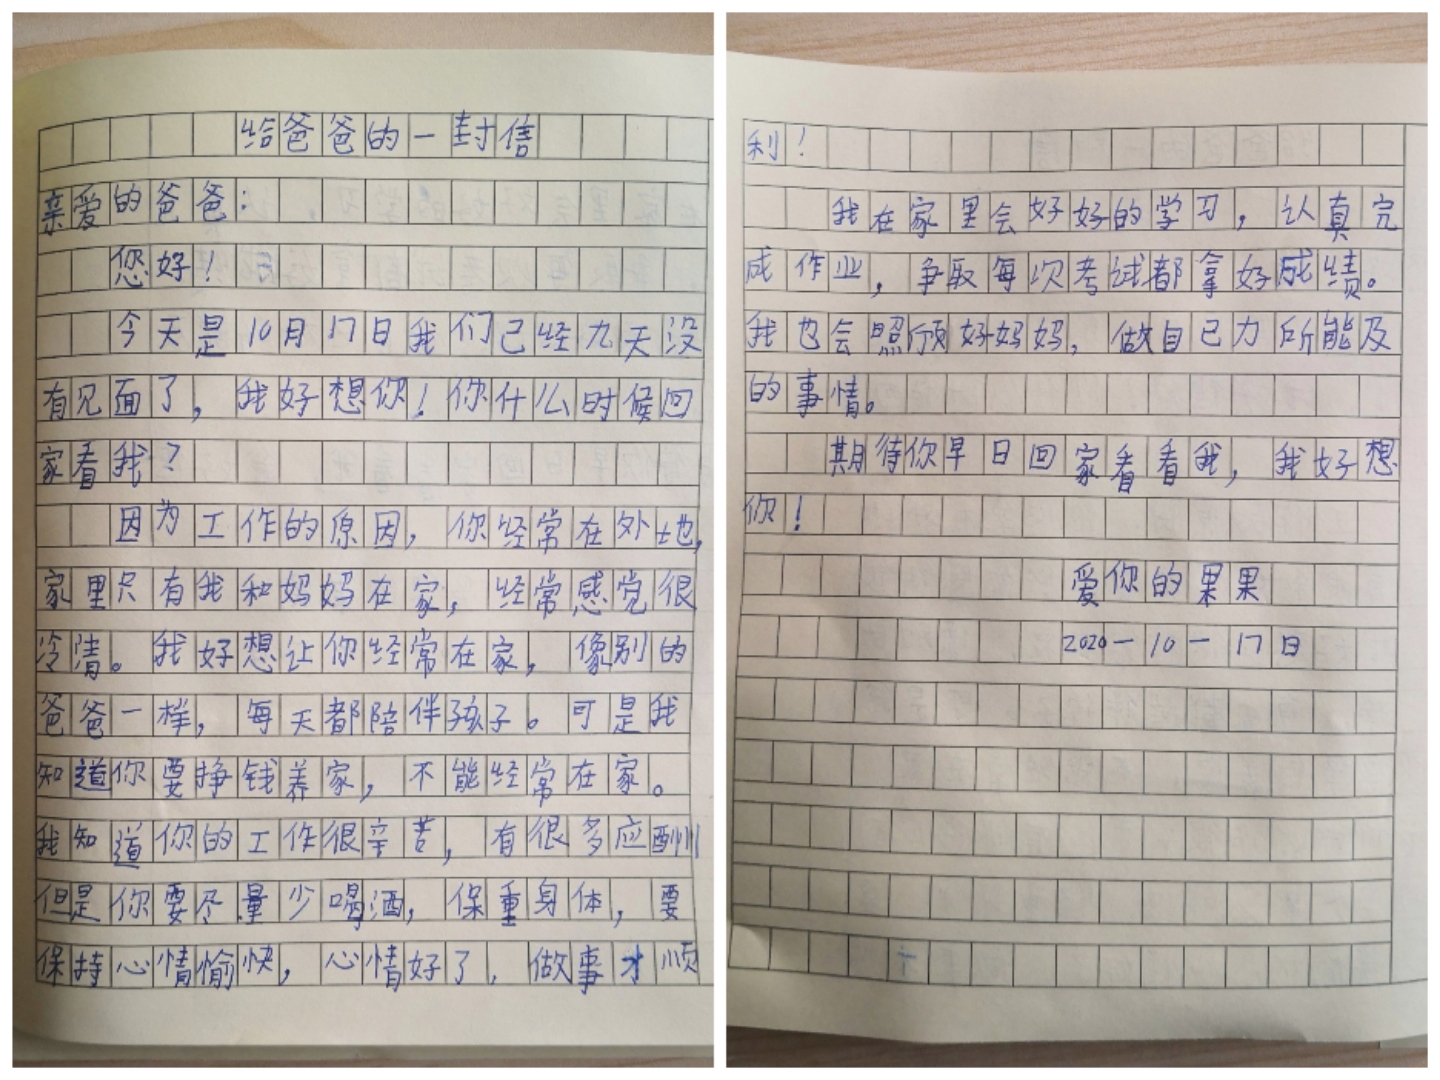 给爸爸的一封信
亲爱的爸爸:
您好!
今天是10月17日我们已经九天没
有见面了,我好想你!你什么时候回
家看我?
因为工作的原因,你经常在外地,
家里只有我和妈妈在家,经常感觉很
冷清。我好想让你经常在家,像别的
爸爸一样,每天都陪伴孩子。可是我
知道你要挣钱养家,不能经常在家。
我知道你的工作很辛苦,有很多应酬
但是你要尽量少喝酒,保重身体,要
保持心情愉快,心情好了,做事才顺
利!
我在家里会好好的学习,认真完
成作业,争取每次考试都拿好成绩。
我也会照顾好妈妈,做自己力所能及
的事情。
期待你早日回家看看我,我好想
你!
爱你的果果
2020一10一17日